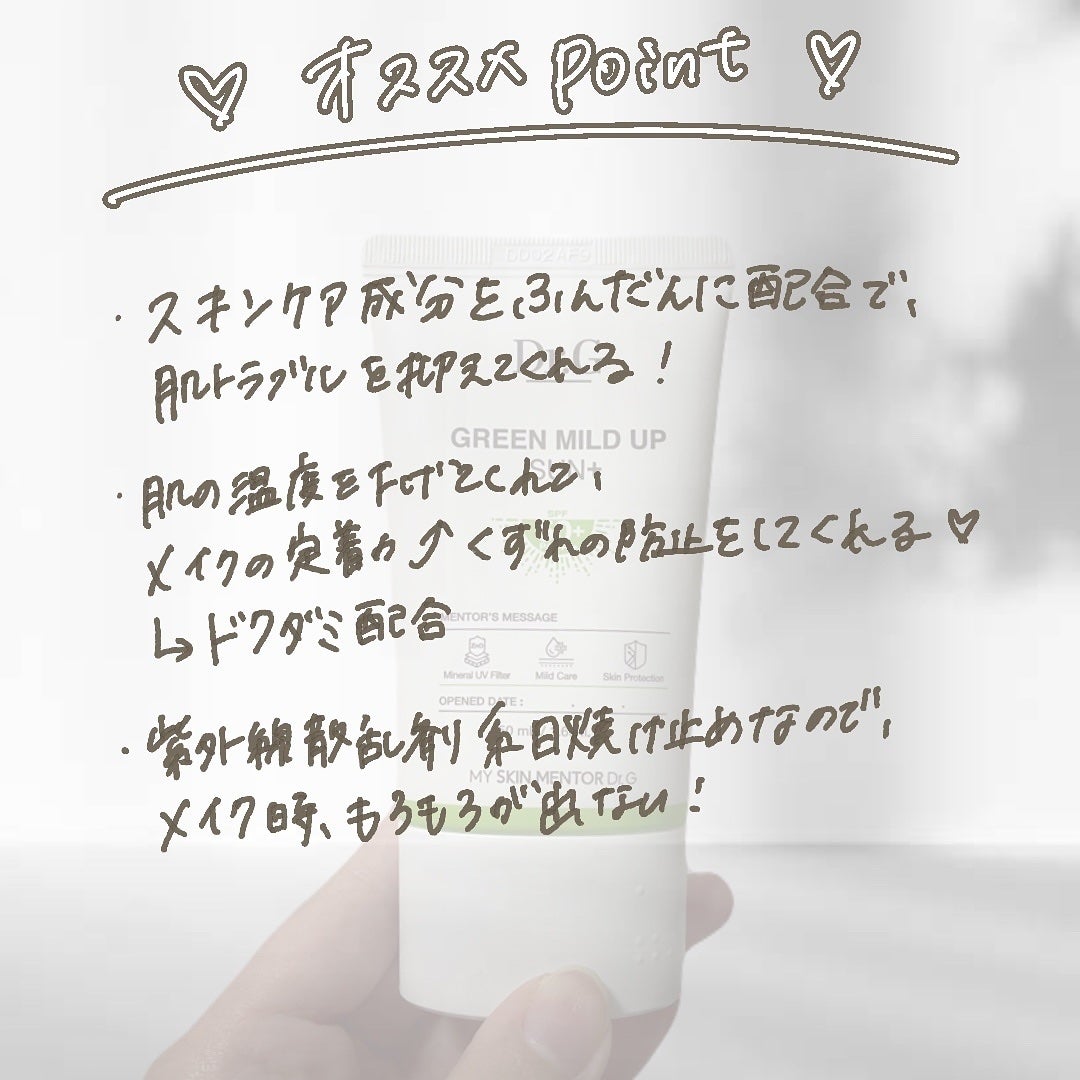 ♡ オススメ point ♡
DD02AF9
・スキンケア成分をふんだんに配合で、
Dr.G
肌トラブルを抑えてくれる！
GREEN MILD UP
SUN+
・肌の温度を下げてくれて、
SPF
メイクの定着力⤴くずれの防止をしてくれる♡
MENTOR'S MESSAGE
↳ドクダミ配合
Mineral UV Filter Mild Care Skin Protection
OPENED DATE : . .
・紫外線散乱剤系日焼け止めなので、
MY SKIN MENTOR Dr.G
メイク時、もろもろが出ない！